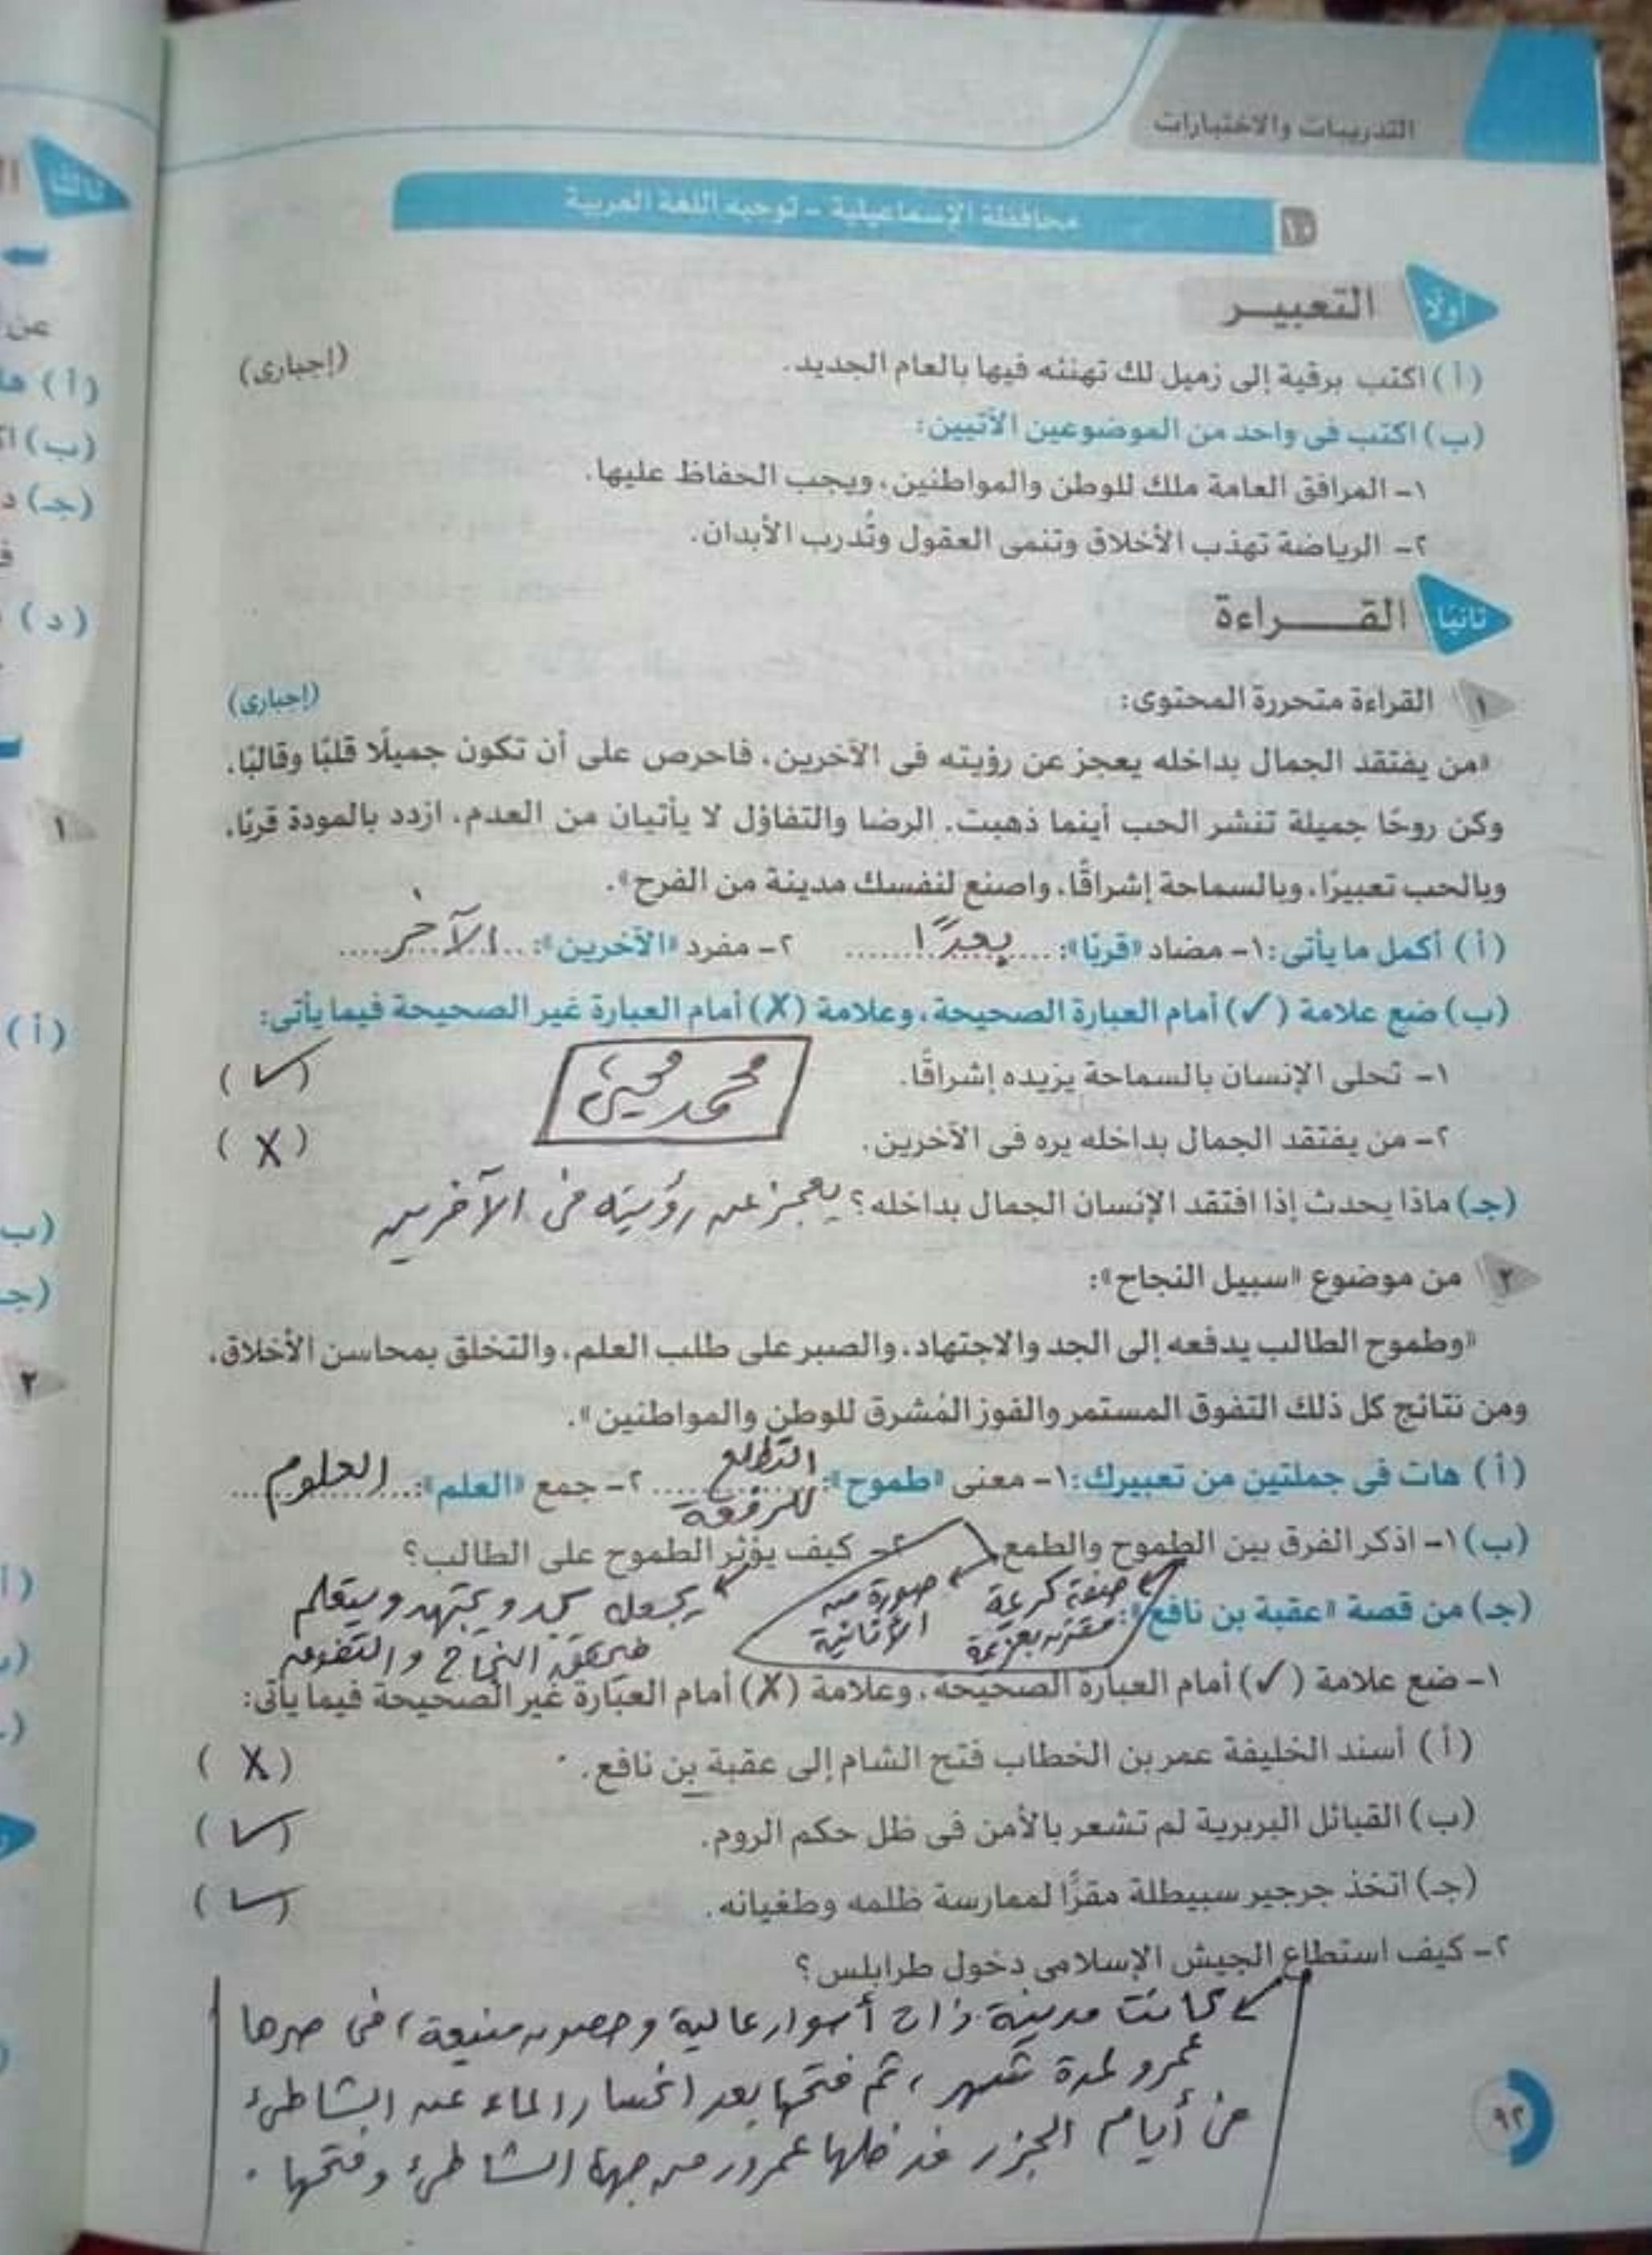 التدريبات والاختبارات
١٥ محافظة الإسماعيلية - توجيه اللغة العربية
أولًا التعبيـــر
(أ) اكتب برقية إلى زميل لك تهنئه فيها بالعام الجديد. (إجبارى)
(ب) اكتب فى واحد من الموضوعين الآتيين:
١- المرافق العامة ملك للوطن والمواطنين، ويجب الحفاظ عليها.
٢- الرياضة تهذب الأخلاق وتنمى العقول وتُدرب الأبدان.
ثانيًا القـــــراءة
١ القراءة متحررة المحتوى: (إجبارى)
«من يفتقد الجمال بداخله يعجز عن رؤيته فى الآخرين، فاحرص على أن تكون جميلًا قلبًا وقالبًا،
وكن روحًا جميلة تنشر الحب أينما ذهبت. الرضا والتفاؤل لا يأتيان من العدم، ازدد بالمودة قربًا،
وبالحب تعبيرًا، وبالسماحة إشراقًا، واصنع لنفسك مدينة من الفرح».
(أ) أكمل ما يأتى: ١- مضاد «قربًا»: بعدًا ٢- مفرد «الآخرين»: الآخر
(ب) ضع علامة (✓) أمام العبارة الصحيحة، وعلامة (X) أمام العبارة غير الصحيحة فيما يأتى:
١- تحلى الإنسان بالسماحة يزيده إشراقًا. (✓)
محمد
٢- من يفتقد الجمال بداخله يره فى الآخرين. (X)
(جـ) ماذا يحدث إذا افتقد الإنسان الجمال بداخله؟ يعجز عن رؤيته فى الآخرين
٢ من موضوع «سبيل النجاح»:
«وطموح الطالب يدفعه إلى الجد والاجتهاد، والصبر على طلب العلم، والتخلق بمحاسن الأخلاق،
ومن نتائج كل ذلك التفوق المستمر والفوز المُشرق للوطن والمواطنين».
(أ) هات فى جملتين من تعبيرك: ١- معنى «طموح»: التطلع للرفعة ٢- جمع «العلم»: العلوم
(ب) ١- اذكر الفرق بين الطموح والطمع ٢- كيف يؤثر الطموح على الطالب؟
صفة كريمة مقترنه بعزيمة
صورة من الأنانية
يجعله يجد ويجتهد ويتعلم
فيحقق النجاح والتفوق
(جـ) من قصة «عقبة بن نافع»:
١- ضع علامة (✓) أمام العبارة الصحيحة، وعلامة (X) أمام العبارة غير الصحيحة فيما يأتى:
(أ) أسند الخليفة عمر بن الخطاب فتح الشام إلى عقبة بن نافع. (X)
(ب) القبائل البربرية لم تشعر بالأمن فى ظل حكم الروم. (✓)
(جـ) اتخذ جرجير سبيطلة مقرًّا لممارسة ظلمه وطغيانه. (✓)
٢- كيف استطاع الجيش الإسلامى دخول طرابلس؟
كانت مدينة ذات أسوار عالية وحصون منيعة،
عمرو لمدة شهر، ثم فتحها بعد انحسار الماء عن الشاطئ
فى أيام الجزر فدخلها عمرو من جهة الشاطئ وفتحها.
٩٢
ثالثًا
عن
(أ)
(ب)
(جـ)
(د)
١
(أ)
(ب
(جـ
٢